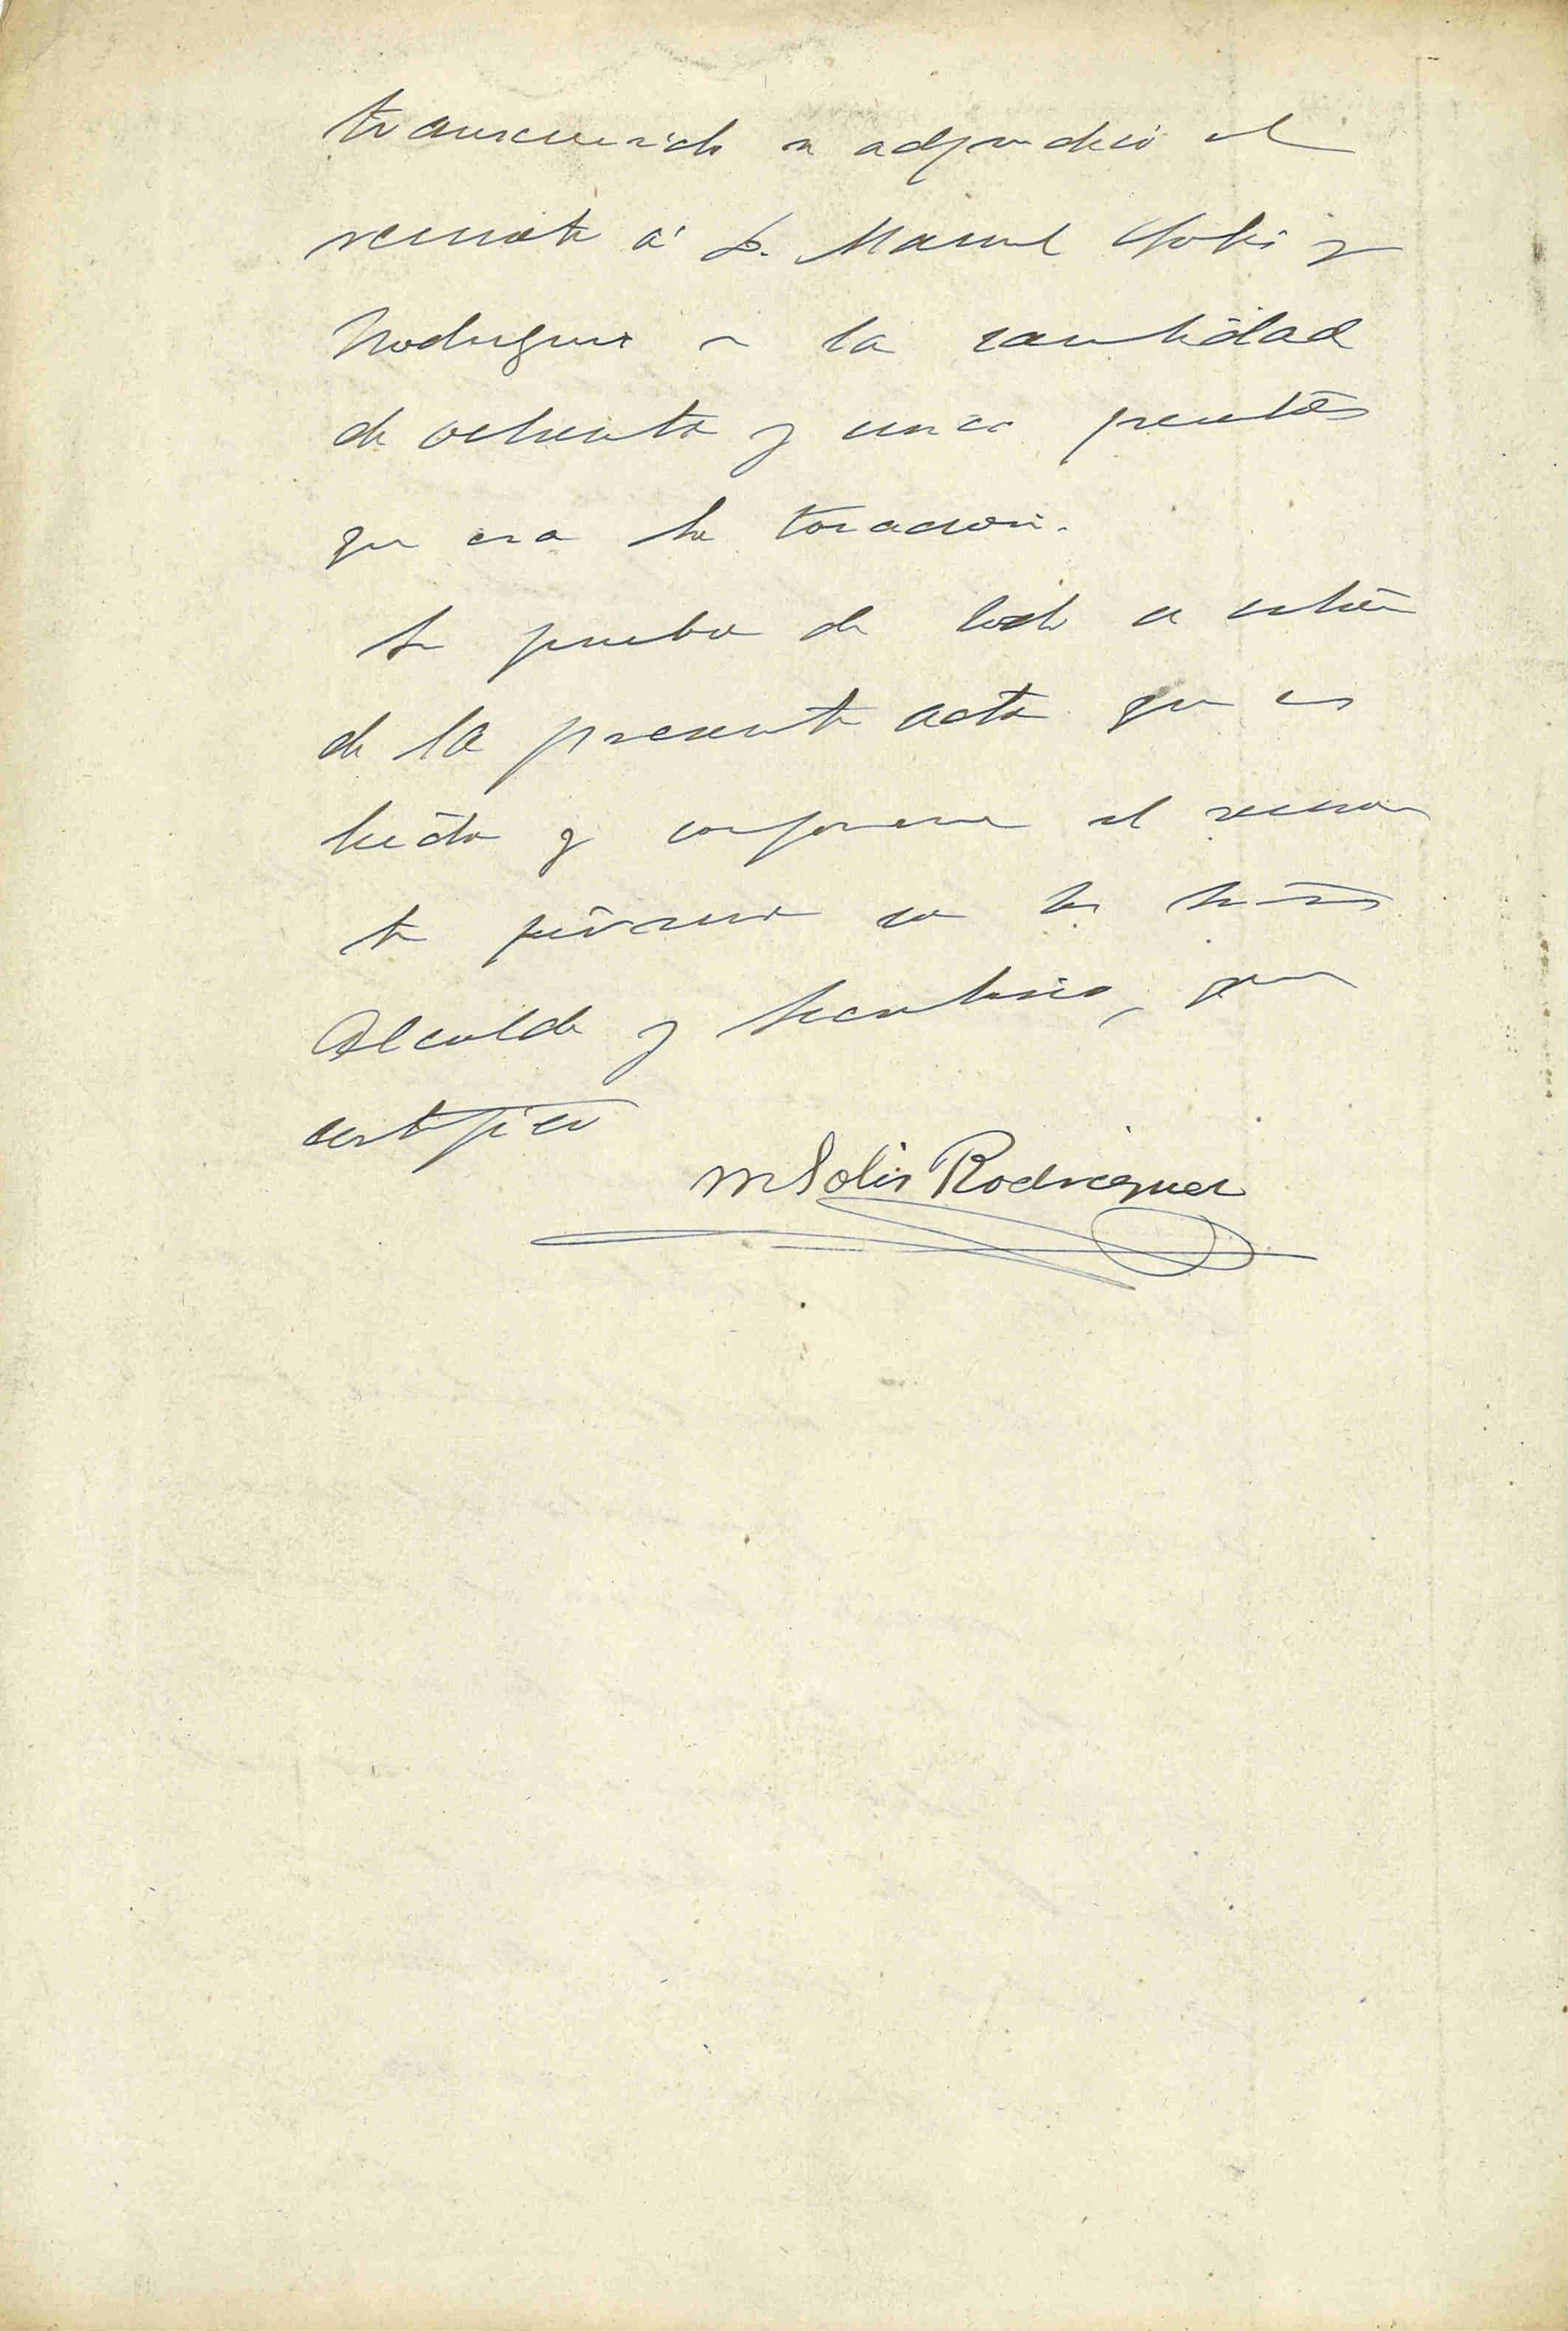 transcurrido se adjudicó el
remate á D. Manuel Solis y
Rodriguez en la cantidad
de ochenta y cinco pesetas
que era la tasacion.
En prueba de todo se estien
de la presente acta que es
leida y conforme el reman
te firman con los Sres
Alcalde y Secretario, que
certifico
M Solis Rodriguez